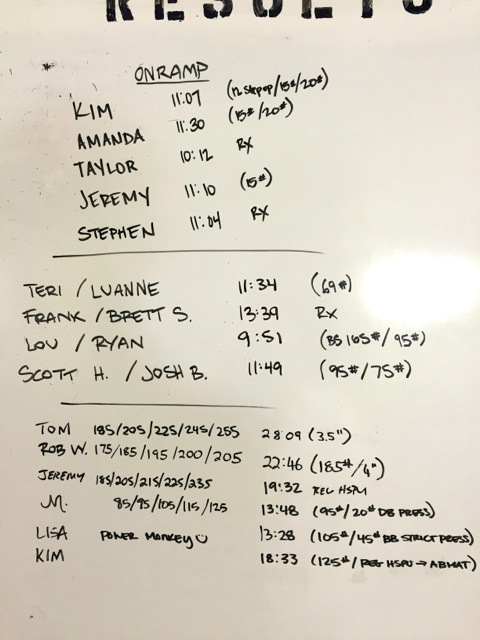 RESULTS
ONRAMP
KIM 11:07 (12" step up/15#/20#)
AMANDA 11:30 (15#/20#)
TAYLOR 10:12 RX
JEREMY 11:10 (15#)
STEPHEN 11:04 RX
TERI / LUANNE 11:34 (69#)
FRANK / BRETT S. 13:39 RX
LOU / RYAN 9:51 (BS 165#/95#)
SCOTT H. / JOSH B. 11:49 (95#/75#)
TOM 185/205/225/245/255 28:09 (3.5")
ROB W. 175/185/195/200/205 22:46 (185#/4")
JEREMY 185/205/215/225/235 19:32 REG HSPU
M. 85/95/105/115/125 13:48 (95#/20# DB PRESS)
LISA POWER MONKEY☺ 13:28 (105#/45# BB STRICT PRESS)
KIM 18:33 (125#/REG HSPU → ABMAT)